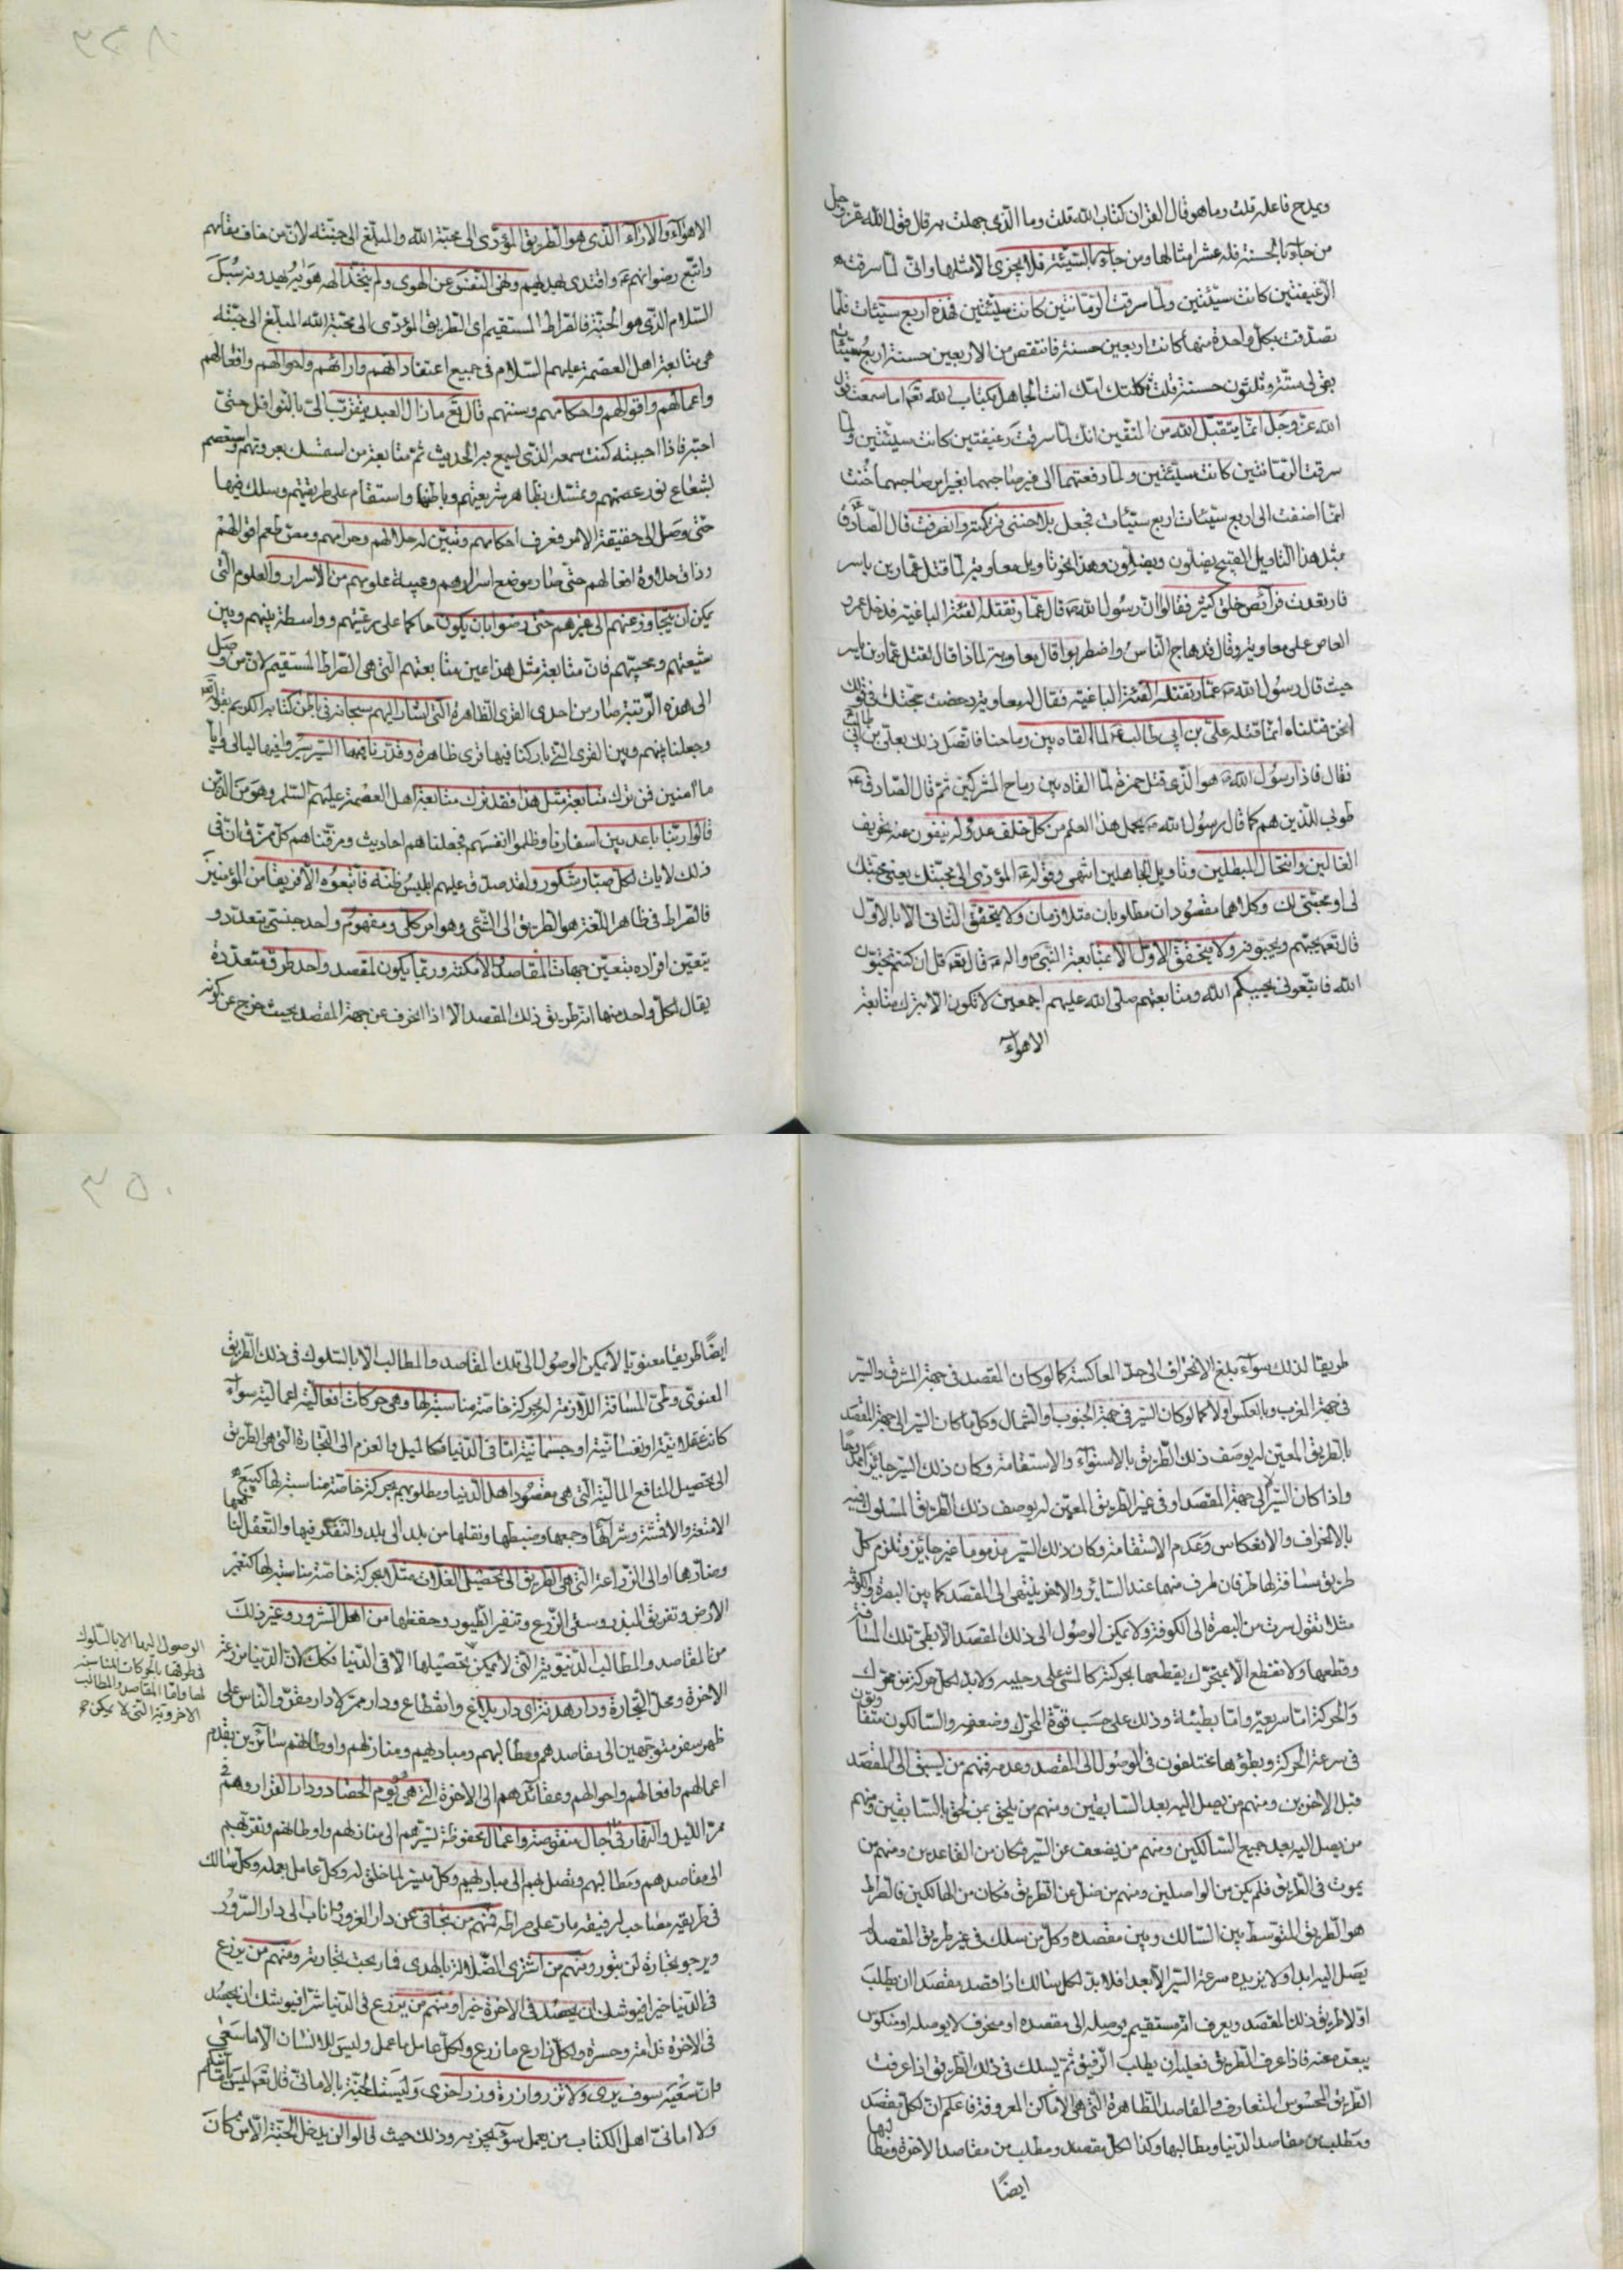 ويمدح فاعله قلت وما هو قال القران كتاب الله قلت وما الذى جهلت به قال قول الله عز وجل
من جاء بالحسنة فله عشر امثالها ومن جاء بالسيئة فلا يجزى الا مثلها وانى لما سرقت
الرغيفتين كانت سيئتين ولما سرقت الرمانتين كانت سيئتين فهذه اربع سيئات فلما
تصدقت بكل واحدة منها كانت اربعين حسنة فانتقص من الاربعين حسنة اربع سيئات
بقى لى ستة وثلثون حسنة قلت ثكلتك امك انت الجاهل بكتاب الله تعالى اما سمعت قول
الله عز وجل انما يتقبل الله من المتقين انك لما سرقت رغيفتين كانت سيئتين ولما
سرقت الرمانتين كانت سيئتين ولما دفعتهما الى غير صاحبهما بغير امر صاحبهما كنت
انما اضفت الى اربع سيئات اربع سيئات فجعل يلاحظنى فتركته وانصرفت قال الصادق
بمثل هذا التاويل القبيح يضلون ويضلون وهذا نحو تاويل معاوية لما قتل عمار بن ياسر
فارتعدت فرائص خلق كثير فقالوا ان رسول الله ص قال عمار تقتله الفئة الباغية فدخل عمرو
العاص على معاوية وقال قد هاج الناس واضطربوا قال معاوية لماذا قال لقتل عمار بن ياسر
حيث قال رسول الله ص عمار تقتله الفئة الباغية فقال له معاوية دحضت حجتك فى قولك
انحن قتلناه انما قتله على بن ابى طالب لما القاه بين رماحنا فاتصل ذلك بعلى بن ابى طالب
فقال فاذا رسول الله ص هو الذى قتل حمزة لما القاه بين رماح المشركين ثم قال الصادق ع
طوبى للذين هم كما قال رسول الله ص يحمل هذا العلم من كل خلف عدوله ينفون عنه تحريف
الغالين وانتحال المبطلين وتاويل الجاهلين انتهى وقوله ع المؤدى الى محبتك يعنى محبتك
لى او محبتى لك وكلاهما مقصودان مطلوبان متلازمان ولا يتحقق الثانى الا بالاول
قال تعالى يحبهم ويحبونه ولا يتحقق الاول الا بمتابعة النبى واله ص قال تعالى قل ان كنتم تحبون
الله فاتبعونى يحببكم الله ومتابعتهم صلى الله عليهم اجمعين لا تكون الا بترك متابعة
الاهواء
٣٤٨
الاهواء والاراء الذى هو الطريق المؤدى الى محبة الله والمبلغ الى جنته لان من خاف مقامهم
واتبع رضوانهم واقتدى بهديهم ونهى النفس عن الهوى ولم يتخذ الهه هواه يهديه سبل
السلام الذى هو الجنة فالصراط المستقيم اى الطريق المؤدى الى محبة الله المبلغ الى جنته
هى متابعة اهل العصمة عليهم السلام فى جميع اعتقاداتهم واراداتهم واحوالهم وافعالهم
واعمالهم واقوالهم واحكامهم وسننهم قال تع ما زال العبد يتقرب الى بالنوافل حتى
احبه فاذا احببته كنت سمعه الذى يسمع به الحديث ثم متابعة من استمسك بعروتهم واستعصم
بشعاع نور عصمتهم وتمسك بظاهر شريعتهم وباطنها واستقام على طريقتهم وسلك فيها
حتى وصل الى حقيقة الامر فعرف احكامهم وتبين له حلالهم وحرامهم ومعنى طعم اقوالهم
وذاق حلاوة افعالهم حتى صار موضع اسرارهم وعيبة علومهم من الاسرار والعلوم التى
يمكن ان يتجاوز عنهم الى غيرهم حتى رضوا بان يكون حاكما على رعيتهم وواسطة بينهم وبين
شيعتهم ومحبيهم فان متابعة مثل هذا عين متابعتهم التى هى الصراط المستقيم لان من وصل
الى هذه الرتبة صار من احدى القرى الظاهرة التى اشار اليهم سبحانه فى باطن كتابه الكريم بقوله
وجعلنا بينهم وبين القرى التى باركنا فيها قرى ظاهرة وقدرنا فيها السير سيروا فيها ليالى وايا
ما امنين فمن ترك متابعة مثل هذا فقد ترك متابعة اهل العصمة عليهم السلم وهو من الذين
قالوا ربنا باعد بين اسفارنا وظلموا انفسهم فجعلناهم احاديث ومزقناهم كل ممزق ان فى
ذلك لايات لكل صبار شكور ولقد صدق عليهم ابليس ظنه فاتبعوه الا فريقا من المؤمنين
فالصراط فى ظاهر اللغة هو الطريق الى الشئ وهو امر كلى ومفهوم واحد جنسى يتعدد و
يتعين افراده بتعين جهات المقاصد والامكنة وربما يكون لمقصد واحد طرق متعددة
يقال لكل واحد منها انه طريق ذلك المقصد الا اذا انحرف عن جهة المقصد بحيث خرج عن كونه
طريقا لذلك سواء بلغ الانحراف الى حد المعاكسة كما لو كان المقصد فى جهة المشرق والسير
فى جهة المغرب وبالعكس او لا كما لو كان السير فى جهة الجنوب او الشمال وكل ما كان السير الى جهة المقصد
بالطريق المعين له يوصف ذلك الطريق بالاستواء والاستقامة وكان ذلك السير جائزا ممدوحا
واذا كان السير لا الى جهة المقصد او فى غير الطريق المعين له يوصف ذلك الطريق المسلوك فيه
بالانحراف والانعكاس وعدم الاستقامة وكان ذلك السير مذموما غير جائز وتلزم كل
طريق مسافة لها طرفان طرف منهما عند السائر والاخر ينتهى الى المقصد كما بين البصرة والكوفة
مثلا تقول سرت من البصرة الى الكوفة ولا يمكن الوصول الى ذلك المقصد الا بطى تلك المسافة
وقطعها ولا تقطع الا بمتحرك يقطعها بحركة كالمشى على رجليه ولا بد لكل حركة من محرك
والحركة اما سريعة واما بطيئة وذلك على حسب قوة المحرك وضعفه والسالكون متفاوتون
فى سرعة الحركة وبطؤها مختلفون فى الوصول الى المقصد وعدمه فمنهم من يسبق الى المقصد
قبل الاخرين ومنهم من يصل اليه بعد السابقين ومنهم من يلحق بمن لحق بالسابقين ومنهم
من يصل اليه بعد جميع السالكين ومنهم من يضعف عن السير فكان من القاعدين ومنهم من
يموت فى الطريق فلم يكن من الواصلين ومنهم من ضل عن الطريق فكان من الهالكين فالصراط
هو الطريق المتوسط بين السالك وبين مقصده وكل من سلك فى غير طريق المقصد لم
يصل اليه ابدا ولا يزيده سرعة السير الا بعدا فلا بد لكل سالك اذا قصد مقصدا ان يطلب
اولا طريق ذلك المقصد ويعرف انه مستقيم يوصله الى مقصده او منحرف لا يوصله او منكوس
يبعده عنه فاذا عرف الطريق فعليه ان يطلب الرفيق ثم يسلك فى ذلك الطريق اذا عرفت
الطريق المحسوس المتعارف والمقاصد الظاهرة التى هى الاماكن المعروفة فاعلم ان لكل مقصد
ومطلب من مقاصد الدنيا ومطالبها وكذا لكل مقصد ومطلب من مقاصد الاخرة ومطالبها
ايضا
٣٥٠
ايضا طريقا معنويا لا يمكن الوصول الى تلك المقاصد والمطالب الا بالسلوك فى ذلك الطريق
المعنوى وطى المسافة اللازمة له بحركة خاصة مناسبة لها وهى حركات افعالية اعمالية سواء
كانت عقلانية او نفسانية او جسمانية اما فى الدنيا فكالميل والعزم الى التجارة التى هى الطريق
الى تحصيل المنافع المالية التى هى مقصود اهل الدنيا ومطلوبهم بحركة خاصة مناسبة لها كبيع
الامتعة والاقشة وشرائها وجمعها وضبطها ونقلها من بلد الى بلد والتفكر فيها والتعقل لمنافعها
ومضارها او الى الزراعة التى هى الطريق الى تحصيل الغلات مثلا بحركة خاصة مناسبة لها كتعمير
الارض وتفريق البذر وسقى الزرع وتنفير الطيور وحفظها من اهل الشرور وغير ذلك
من المقاصد والمطالب الدنيوية التى لا يمكن تحصيلها الا فى الدنيا فكك لان الدنيا مزرعة
الاخرة ومحل التجارة ودار هدنة اى دار بلاغ وانقطاع ودار ممر لا دار مقر والناس على
ظهر سفر متوجهين الى مقاصدهم ومطالبهم ومباديهم ومنازلهم واوطانهم سائرين بقدم
اعمالهم وافعالهم واحوالهم وعقائدهم الى الاخرة التى هى يوم الحصاد ودار القرار وهم فى
ممر الليل والنهار فى اجال منقوصة واعمال محفوظة تسيرهم الى منازلهم واوطانهم وتقربهم
الى مقاصدهم ومطالبهم وتصل بهم الى مباديهم وكل ميسر لما خلق له وكل عامل بعمله وكل سالك
فى طريقه مصاحب لرفيقه مار على صراطه فمنهم من تجافى عن دار الغرور واناب الى دار السرور
ويرجو تجارة لن تبور ومنهم من اشترى الضلالة بالهدى فما ربحت تجارته ومنهم من يزرع
فى الدنيا خيرا فيوشك ان يحصد فى الاخرة خيرا ومنهم من يزرع فى الدنيا شرا فيوشك ان يحصد
فى الاخرة ندامة وحسرة ولكل زارع ما زرع ولكل عامل ما عمل وليس للانسان الا ما سعى
وان سعيه سوف يرى ولا تزر وازرة وزر اخرى وليست الجنة بالامانى قال تعالى ليس بامانيكم
ولا امانى اهل الكتاب من يعمل سوء يجز به وذلك حيث قالوا لن يدخل الجنة الا من كان
الوصول اليها الا بالسلوك
فى طرقها بالحركات المناسبة
لها واما المقاصد والمطالب
الاخروية التى لا يمكن